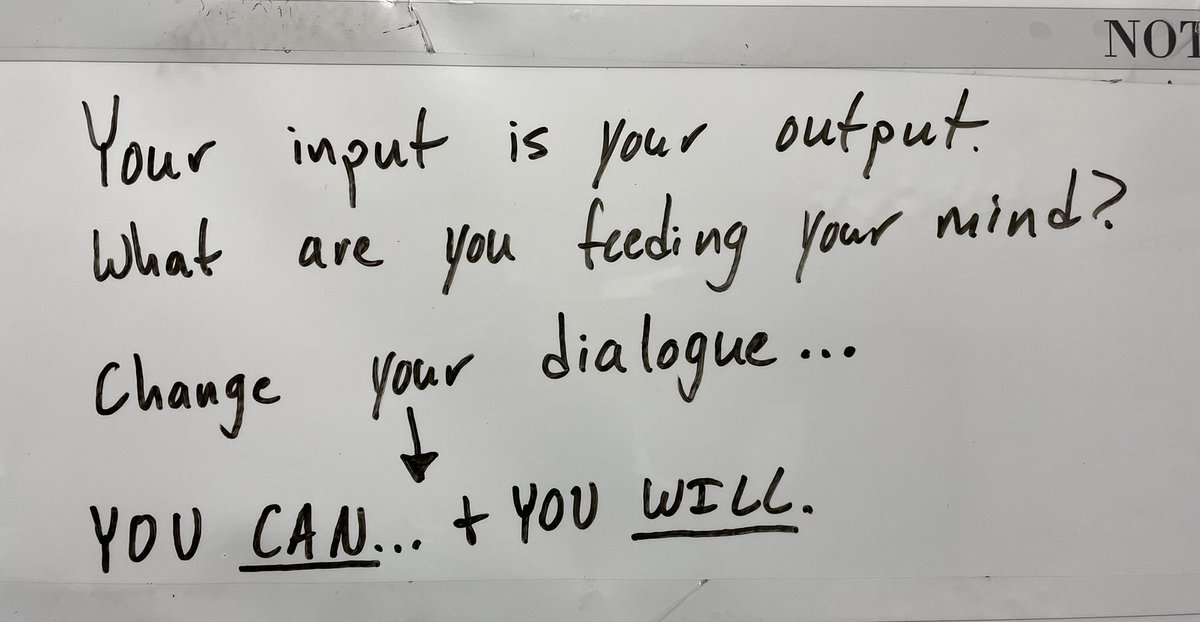 NOT
Your input is your output.
What are you feeding your mind?
Change your dialogue...
YOU CAN... + YOU WILL.